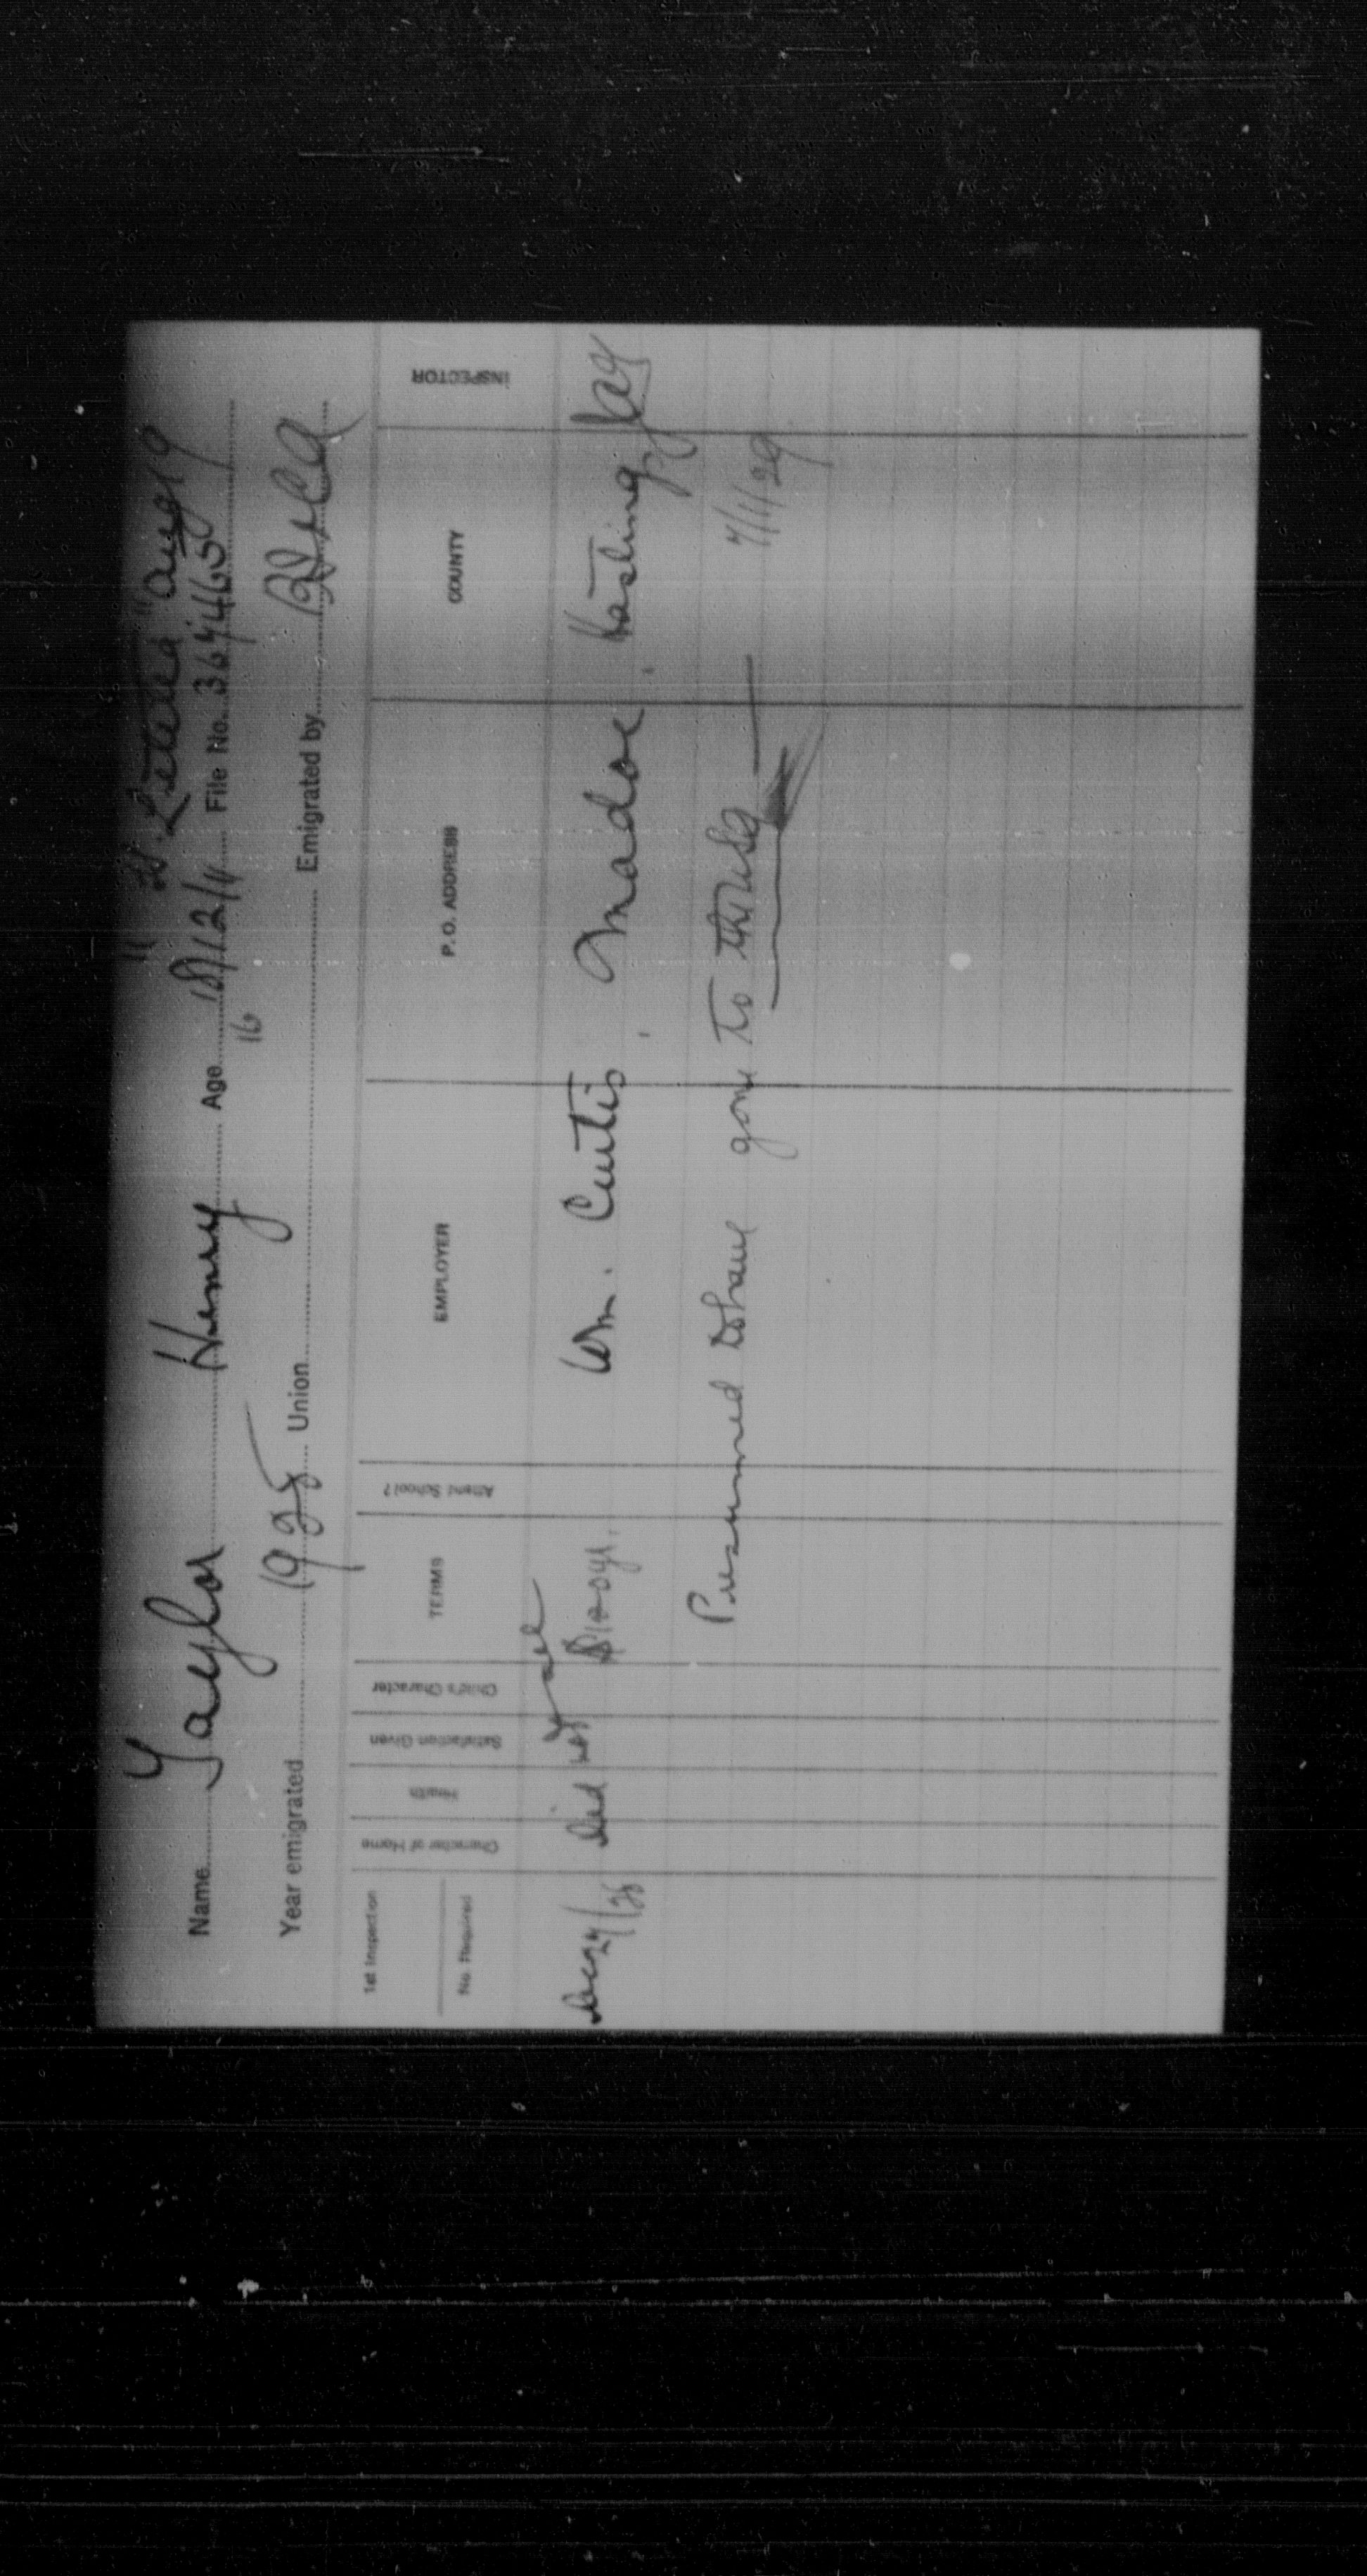 "SS. Letitia" Aug 19
Name Taylor Henry Age 18/12/11 File No. 364465
16
Year emigrated 1928 Union Emigrated by
1st Inspection
No. Required
Character of Home
Health
Satisfaction Given
Child's Character
TERMS
Attend School?
EMPLOYER
P. O. ADDRESS
COUNTY
INSPECTOR
Dec 24/28 Did not see $100 yr. Wm. Curtis, Madoc, Hastings
Presumed to have gone to the USA — 7/11/29